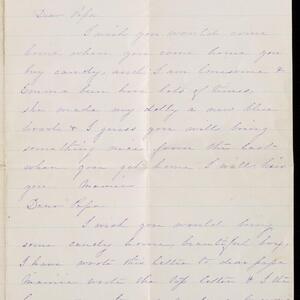 Dear Papa
I wish you would come
home when you come home you
buy candy, and I am lonesome &
Emma been here lots of times,
she made my dolly a new blue
& I guess you will bring
something nice from the East
when you get home I will kiss
you Mamie
Dear Papa
I wish you would bring
some candy home, beautiful boy,
I have wrote this letter to dear papa
Mamie wrote the top letter & I the